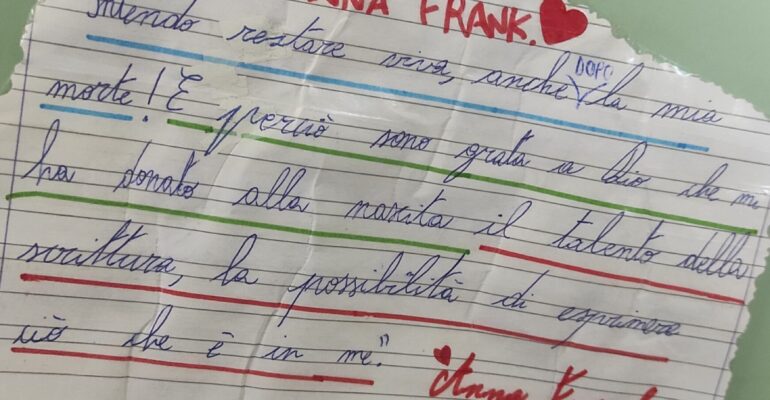 ANNA FRANK.
intendo restare viva, anche DOPO la mia
morte! E perciò sono grata a Dio che mi
ha donato alla nascita il talento della
scrittura, la possibilità di esprimere
ciò che è in me."
Anna